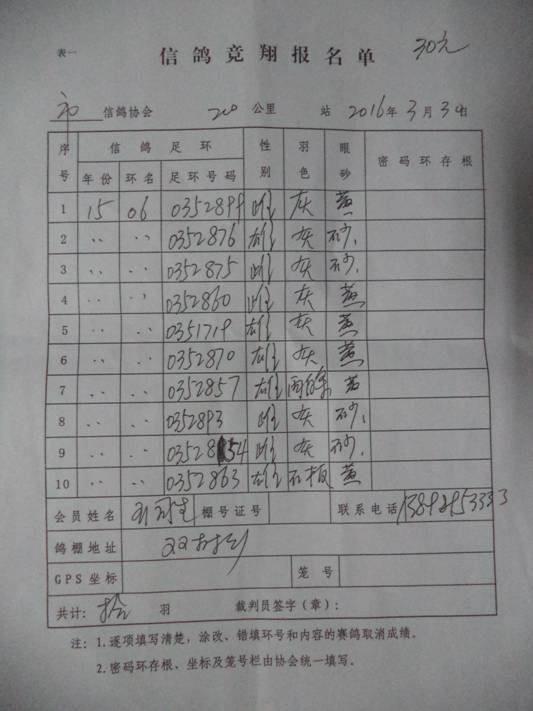 表一
信鸽竞翔报名单 30元
信鸽协会 200公里 站 2016年3月30日
序号 信鸽足环 性别 羽色 眼砂 密码环存根
年份 环名 足环号码
1 15 06 0352899 雌 灰 黄
2 〃 〃 0352876 雄 灰 砂.
3 〃 〃 0352875 雌 灰 砂.
4 〃 〃 0352860 雌 灰 黄
5 〃 〃 0351719 雄 灰 黄
6 〃 〃 0352870 雄 灰 黄
7 〃 〃 0352857 雄 雨 黄
8 〃 〃 0352893 雌 灰 砂.
9 〃 〃 03528 54 雌 灰 砂.
10 〃 〃 0352863 雄 石板 黄
会员姓名 棚号证号 联系电话
鸽棚地址 双
GPS坐标 笼号
共计: 拾 羽 裁判员签字(章):
注: 1.逐项填写清楚,涂改、错填环号和内容的赛鸽取消成绩。
2.密码环存根、坐标及笼号栏由协会统一填写。